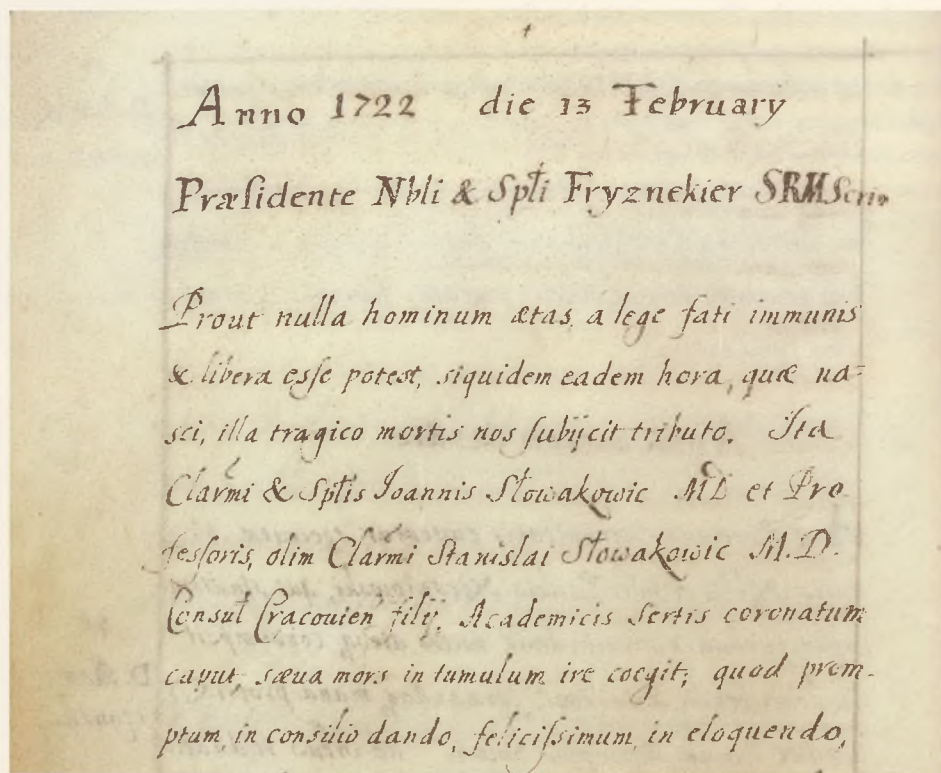 Anno 1722 die 13 February
Præſidente Nbli & Spłi Fryznekier SRM Scri
Prout nulla hominum ætas a lege fati immunis
& libera eſſe poteſt, siquidem eadem hora, quæ na=
sci, illa tragico mortis nos ſubijcit tributo. Ita
Clarmi & Spłis Joannis Słowakowic MD et Pro
feſſoris, olim Clarmi Stanislai Słowakowic M.D.
Consul Cracouien filij, Academicis Sertis coronatum
caput sæua mors in tumulum ire coegit; quod prom-
ptum in consilio dando, feliciſsimum in eloquendo,